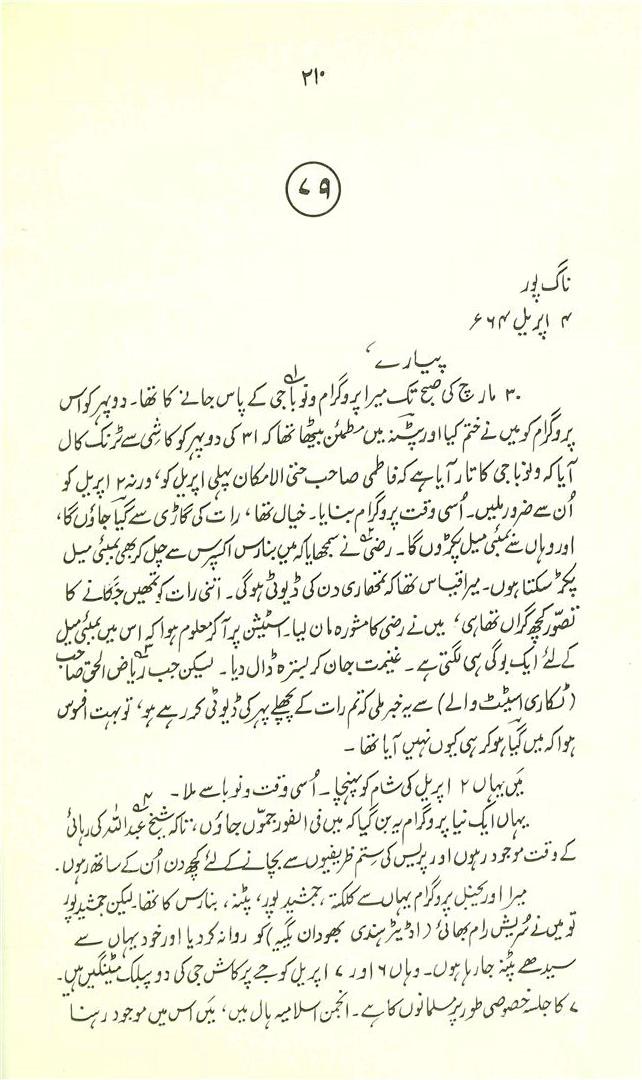 ۲۱۰
۷۹
ناگ پور
۴ اپریل ۶۶۴
پیارے،
۳۰ مارچ کی صبح تک میرا پروگرام ونوباجی۱ کے پاس جانے کا تھا۔ دوپہر کو اس
پروگرام کو میں نے ختم کیا اور پٹنہ میں مطمئن بیٹھا تھا کہ ۳۱ کی دوپہر کو کاشی سے ٹرنک کال
آیا کہ ونوباجی کا تار آیا ہے کہ فاطمی صاحب حتی الامکان پہلی اپریل کو، ورنہ ۲ اپریل کو
اُن سے ضرور ملیں۔ اُسی وقت پروگرام بنایا۔ خیال تھا، رات کی گاڑی سے گیا جاؤں گا،
اور وہاں سے بمبئی میل پکڑوں گا۔ رضی۲ نے سمجھایا کہ میں بنارس اکسپرس سے چل کر بھی بمبئی میل
پکڑ سکتا ہوں۔ میرا قیاس تھا کہ تمھاری دن کی ڈیوٹی ہوگی۔ اتنی رات کو تمھیں جگانے کا
تصوّر کچھ گراں تھا ہی، میں نے رضی کا مشورہ مان لیا۔ اسٹیشن پر آ کر معلوم ہوا کہ اس میں بمبئی میل
کے لئے ایک بوگی ہی لگتی ہے۔ غنیمت جان کر بسترہ ڈال دیا۔ لیکن جب ریاض الحق۳ صاحب
(ٹکاری اسٹیٹ والے) سے یہ خبر ملی کہ تم رات کے پچھلے پہر کی ڈیوٹی کر رہے ہو، تو بہت افسوس
ہوا کہ میں گیا ہو کر ہی کیوں نہیں آیا تھا۔
مَیں یہاں ۲ اپریل کی شام کو پہنچا۔ اُسی وقت ونوبا سے ملا۔
یہاں ایک نیا پروگرام یہ بن گیا کہ میں فی الفور جموّں جاؤں، تاکہ شیخ عبداللہ۴ کی رہائی
کے وقت موجود رہوں اور پریس کی ستم ظریفیوں سے بچانے کے لئے کچھ دن اُن کے ساتھ رہوں۔
میرا اوریجنل پروگرام یہاں سے کلکتہ، جمشید پور، پٹنہ، بنارس کا تھا۔ لیکن جمشید پور
تو میں نے سُریش رام بھائی (اڈیٹر ہندی بھودان یگیہ) کو روانہ کر دیا اور خود یہاں سے
سیدھے پٹنہ جا رہا ہوں۔ وہاں ۶ اور ۷ اپریل کو جے پرکاش جی کی دو پبلک میٹنگیں ہیں۔
۷ کا جلسہ خصوصی طور پر مسلمانوں کا ہے۔ انجمن اسلامیہ ہال میں، مَیں اس میں موجود رہنا